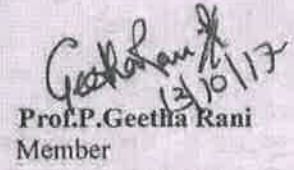 Geetha Rani P
13/10/17
Prof.P.Geetha Rani
Member